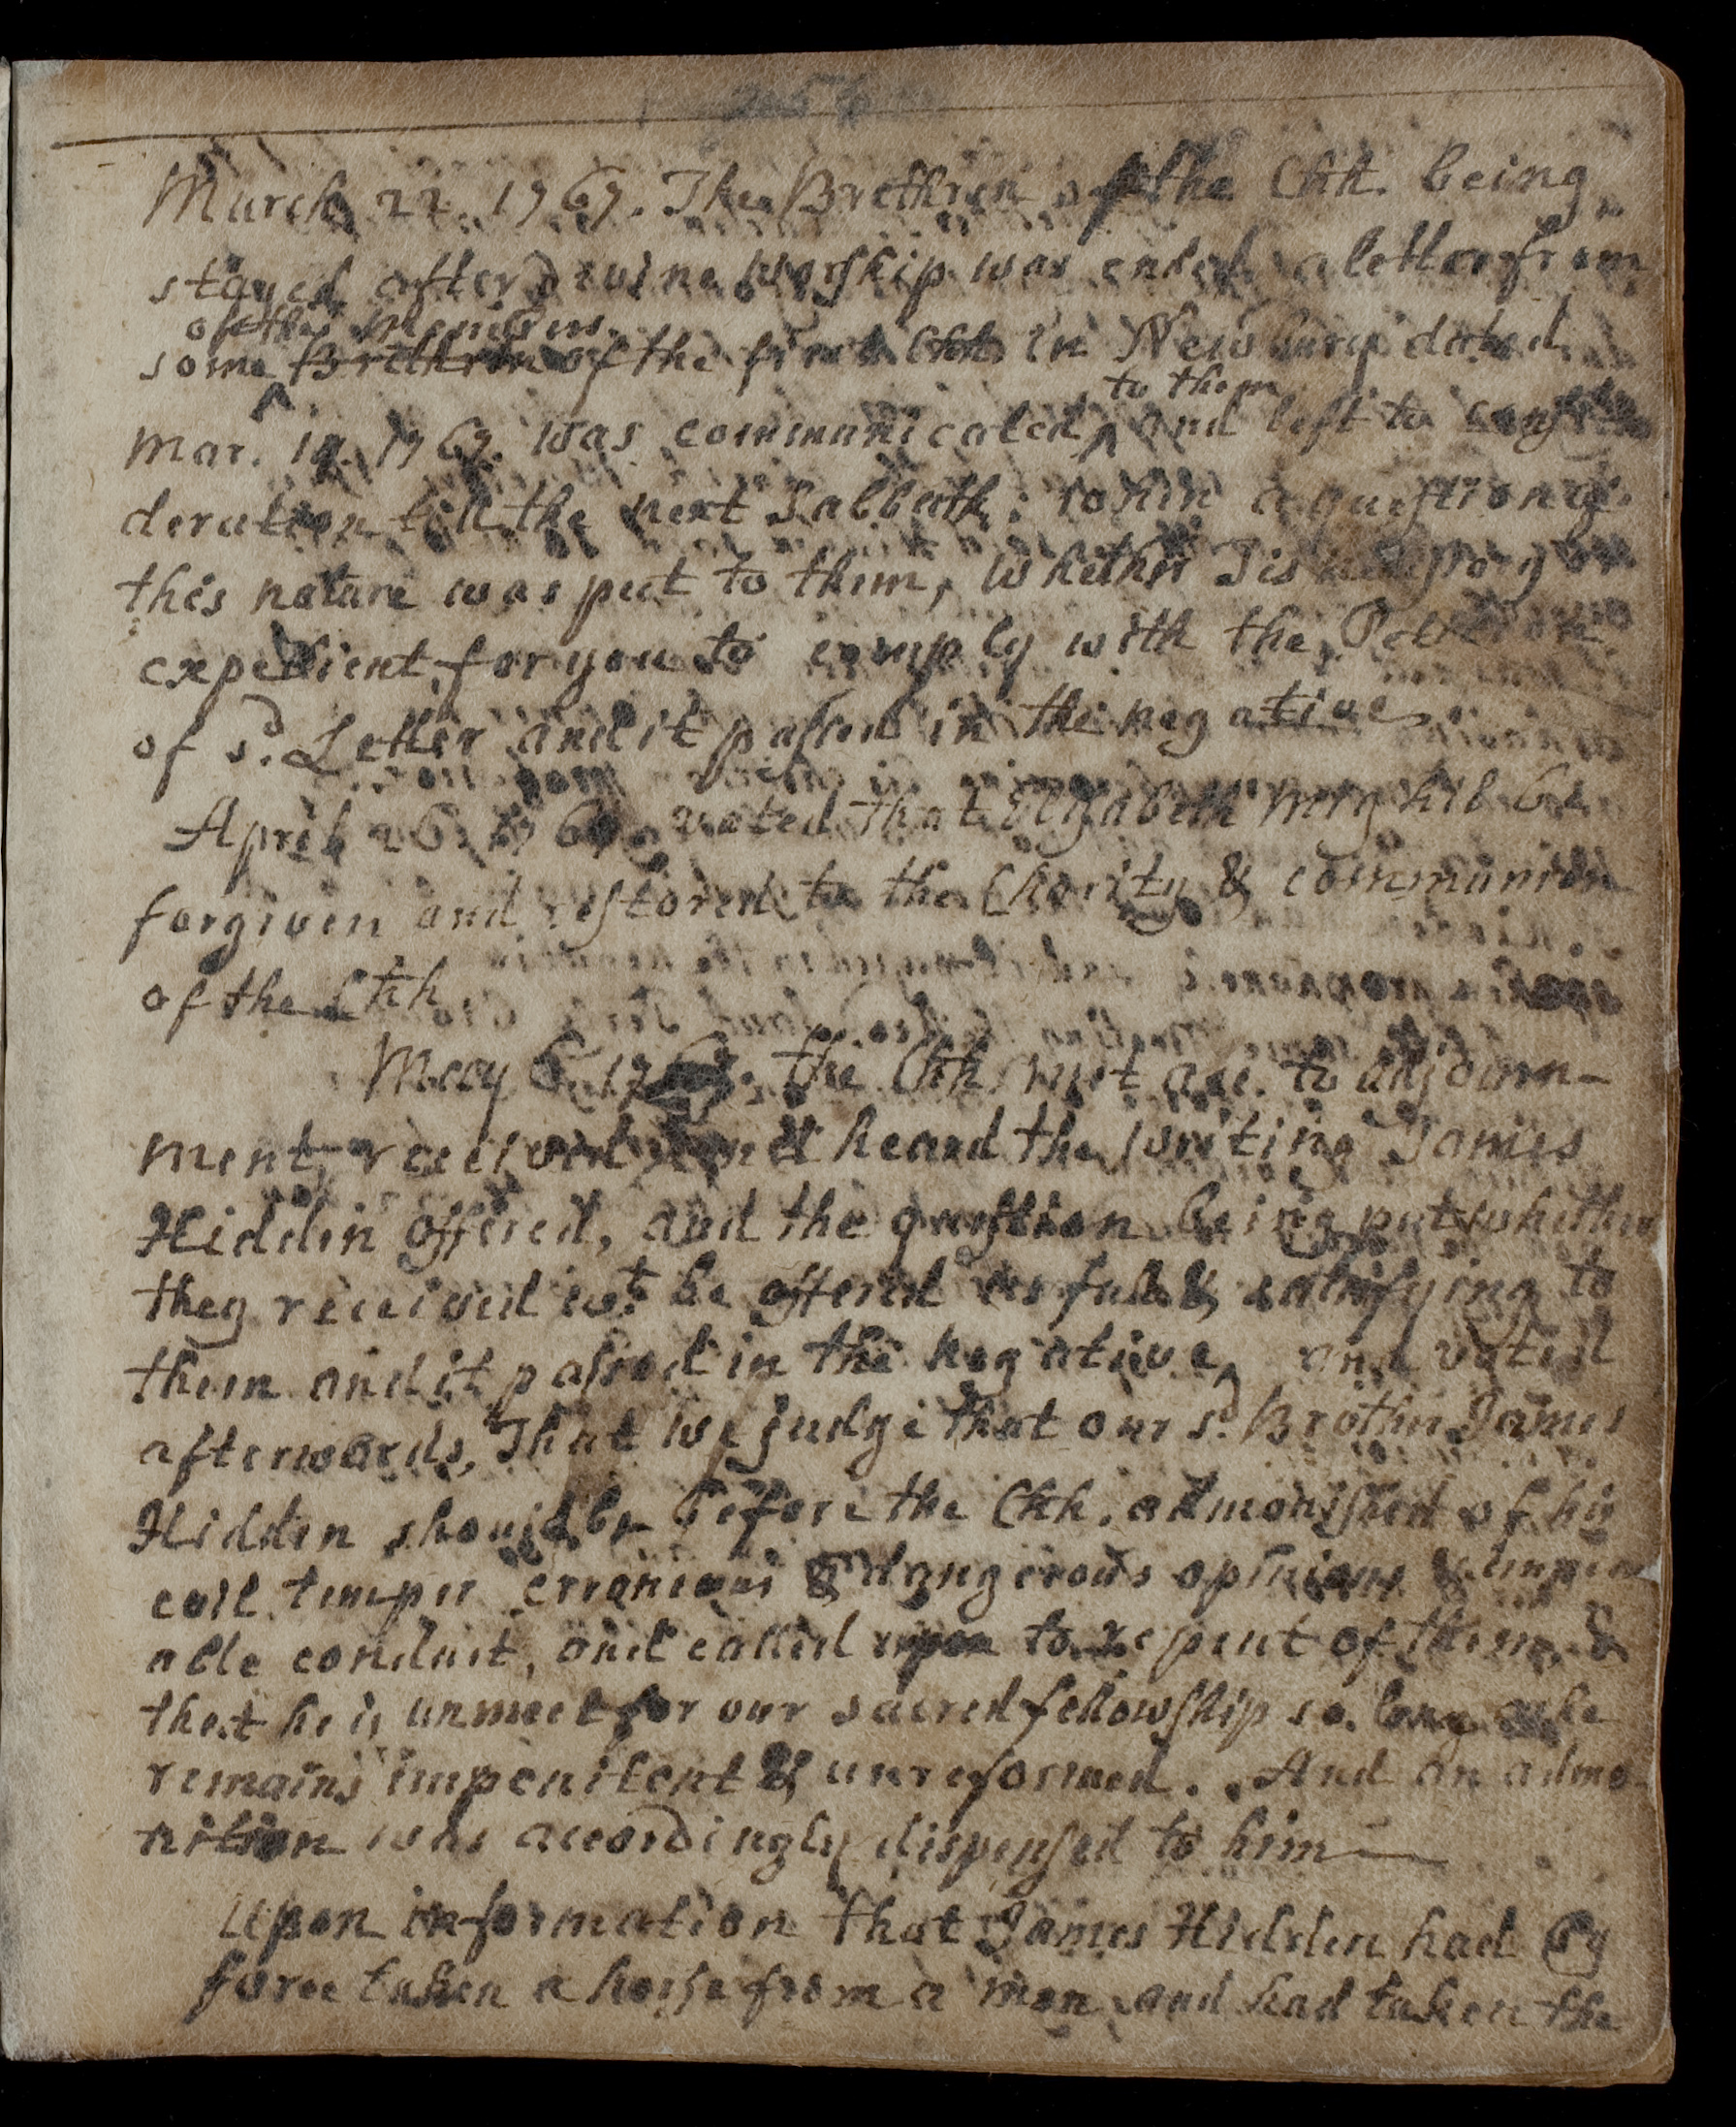 March 22. 1767. The Brethren of the Chh. being
stayed after divine worship was ended a letter from
of the Members
some Brethren of the first Chh. in Newbury dated
to them
Mar. 1767. was communicated and left to consi
deration till the next Sabbath: when a question of
this nature was put to them, Whether Tis or
expedient for you to comply with the Petition
of sd. Letter and it passed in the negative
April 26. 1767. voted that Elizabeth Mighil be
forgiven and restored to the Charity & communion
of the Chh.
May 6. 17 the Chh met acc. to adjourn-
ment, received and heard the writing James
Hidden offered, and the question being put whether
they received wt. he offered as full & satisfying to
them and it passed in the negative, and voted
afterwards, That we judge that our sd. Brother James
Hidden should be before the Chh. admonished of his
evil temper erronious & dangerous opinions &
able conduct, and called upon to repent of them, &
that he is unmeet for our sacred fellowship so long as he
remains impenitent & unreformed. And an admo-
nition was accordingly dispensed to him
Upon information that James Hidden had by
force taken a horse from a man and had taken the